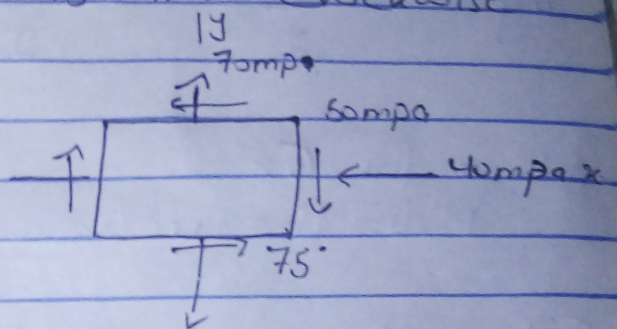 y
70mpa
50mpa
40mpa x
75°